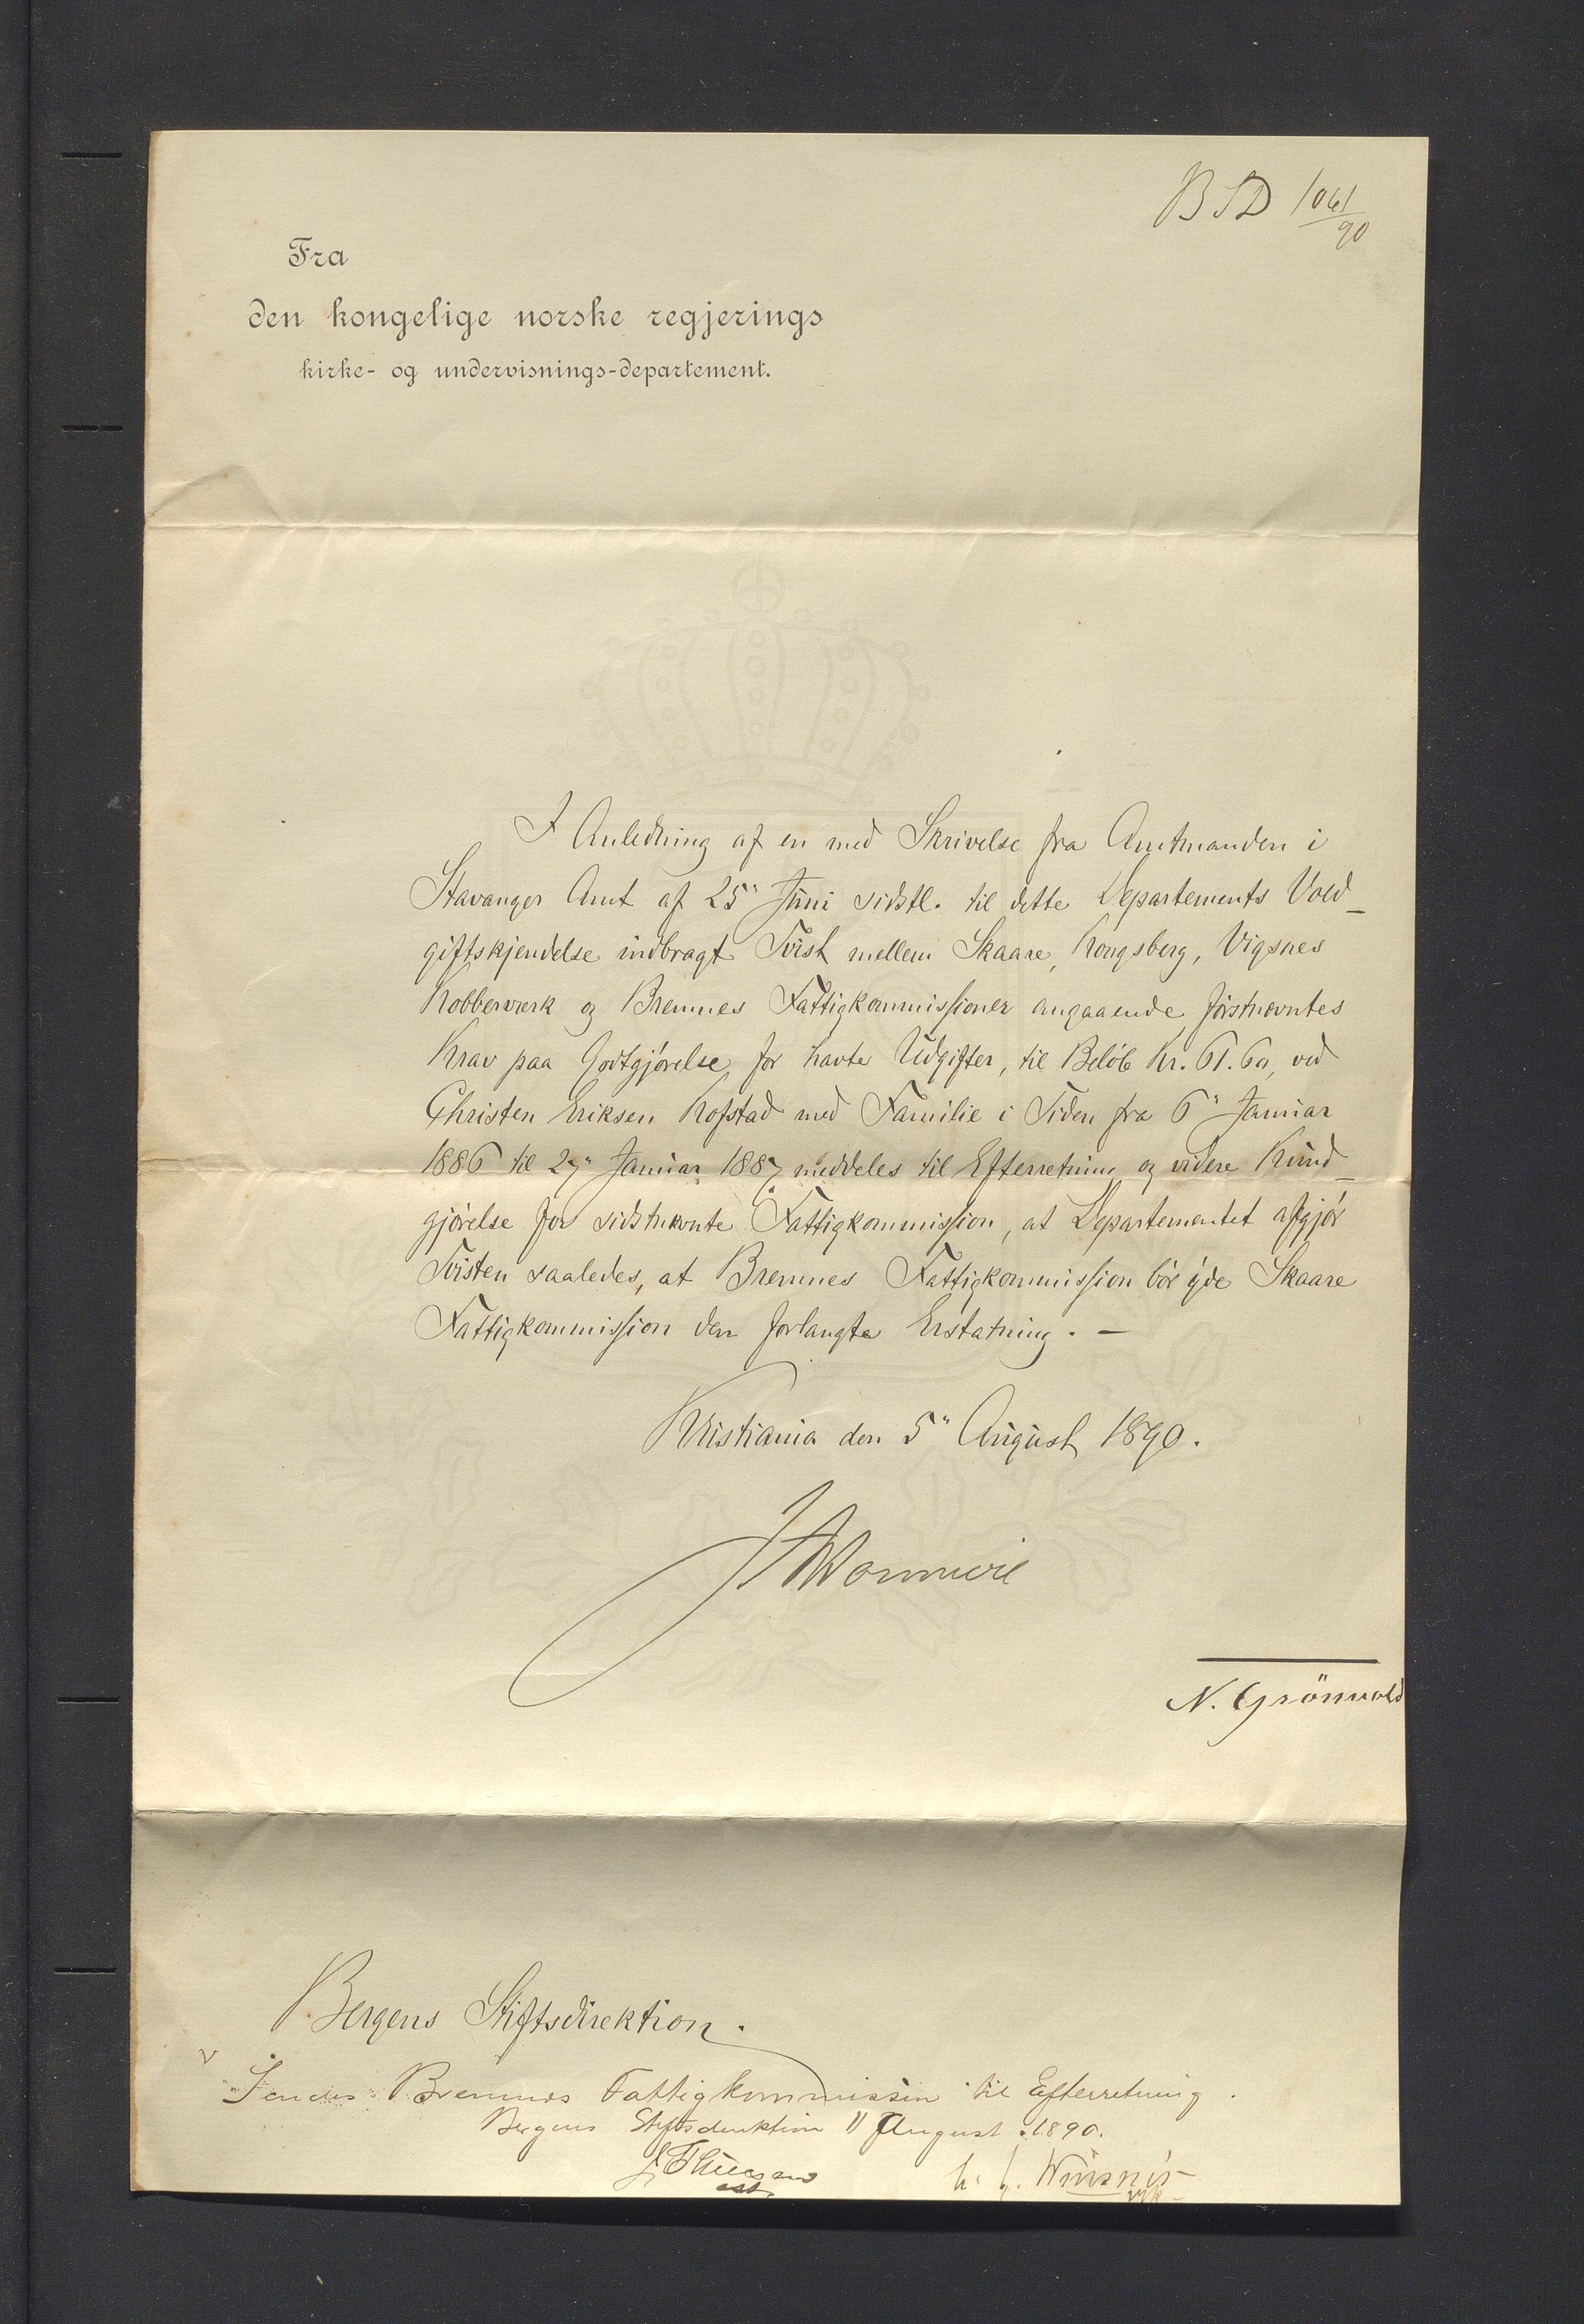 BSD 1061/90
Fra
den kongelige norske regjerings
kirke- og undervisnings-departement.
I Anledning af en med Skrivelse fra Amtmanden i
Stavanger Amt af 25" Juni sidstl. til dette Departements Vold-
giftskjendelse indbragt Tvist mellem Skaare, Kongsberg, Vigsnes
Kobberværk og Bremnes Fattigkommissioner angaaende förstnævntes
Krav paa Godtgjörelse for havte Udgifter, til Belöb Kr. 61.60, ved
Christen Eriksen Kofstad med Familie i Tiden fra 6" Januar
1886 til 27" Januar 1887 meddeles til Efterretning og videre Kund-
gjörelse for sidstnævnte Fattigkommission, at Departementet afgjör
Tvisten saaledes, at Bremnes Fattigkommission bör yde Skaare
Fattigkommission den forlangte Erstatning. —
Kristiania den 5" August 1890.
N. Grönvold
Bergens Stiftsdirektion.
Sendes Bremnes Fattigkommission til Efterretning.
Bergens Stiftsdirektion 11 August 1890.